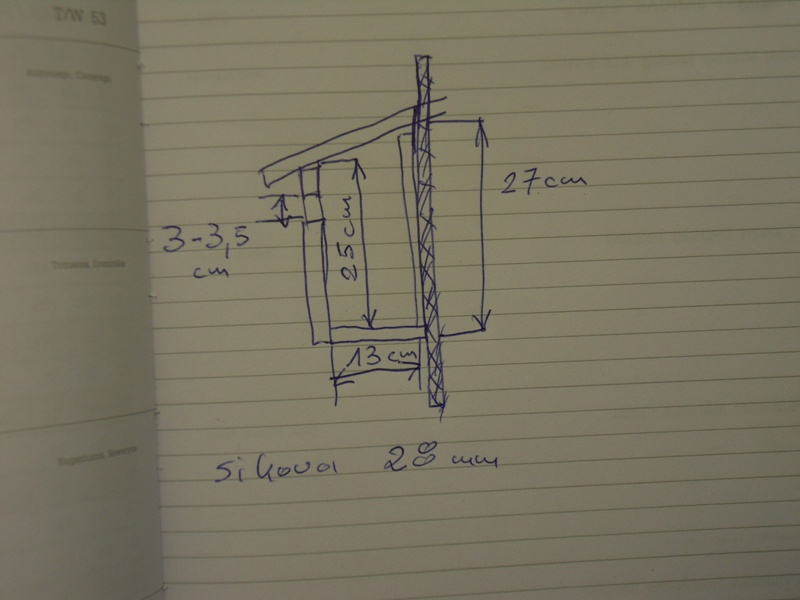 T/W 53
27cm
3-3,5
cm
25cm
13cm
sikova 28 mm